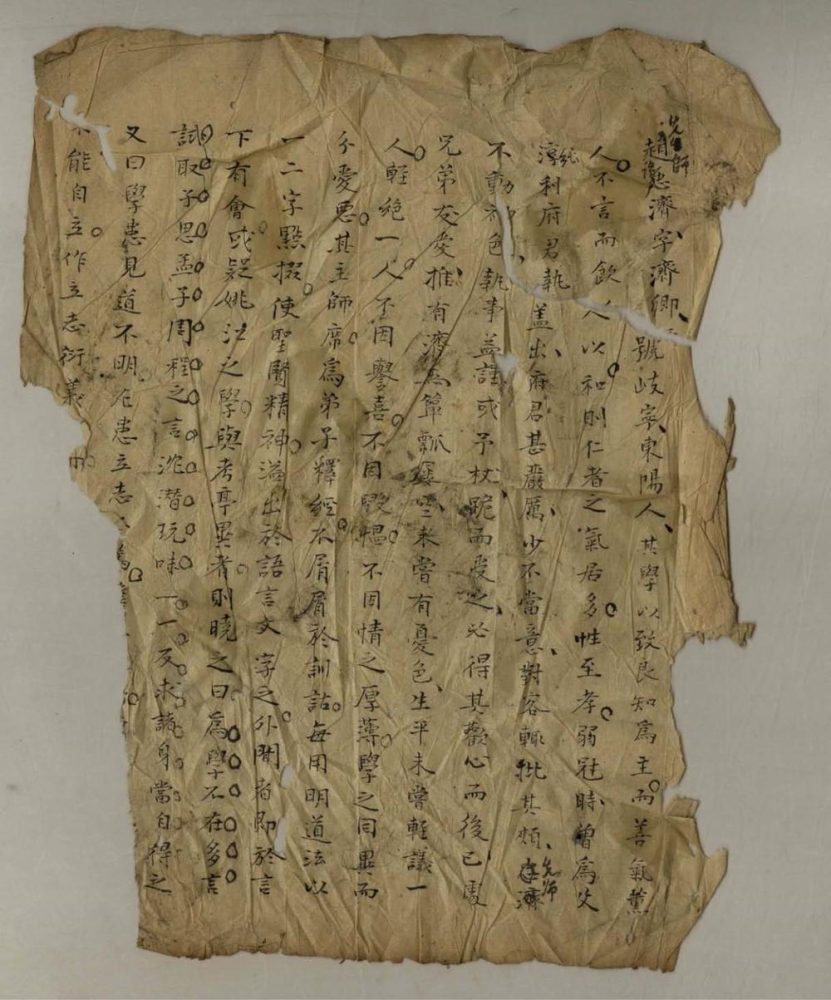 先師趙應濟字濟卿號岐寧東陽人其學以致良知為主而善氣薰
人不言而飲人以和則仁者之氣居多性至孝弱冠時曾為父
淳利府君執蓋出府君甚嚴厲少不當意對客輒批其頰先師
不動色執事益謹或予杖跪而受之必得其歡心而後已處
兄弟友愛推有濟無簞瓢屢空未嘗有憂色生平未嘗輕議一
人輕絕一人不因譽喜不因毀慍不因情之厚薄學之同異而
分愛惡其主師席為弟子釋經不屑屑於訓詁每用明道法以
一二字點掇使聖賢精神溢出於語言文字之外聞者即於言
下有會或疑姚江之學與考亭異者則曉之曰為學不在多言
試取子思孟子周程之言沈潛玩味一一反求諸身當自得之
又曰學患見道不明尤患立志
不能自立作立志衍義